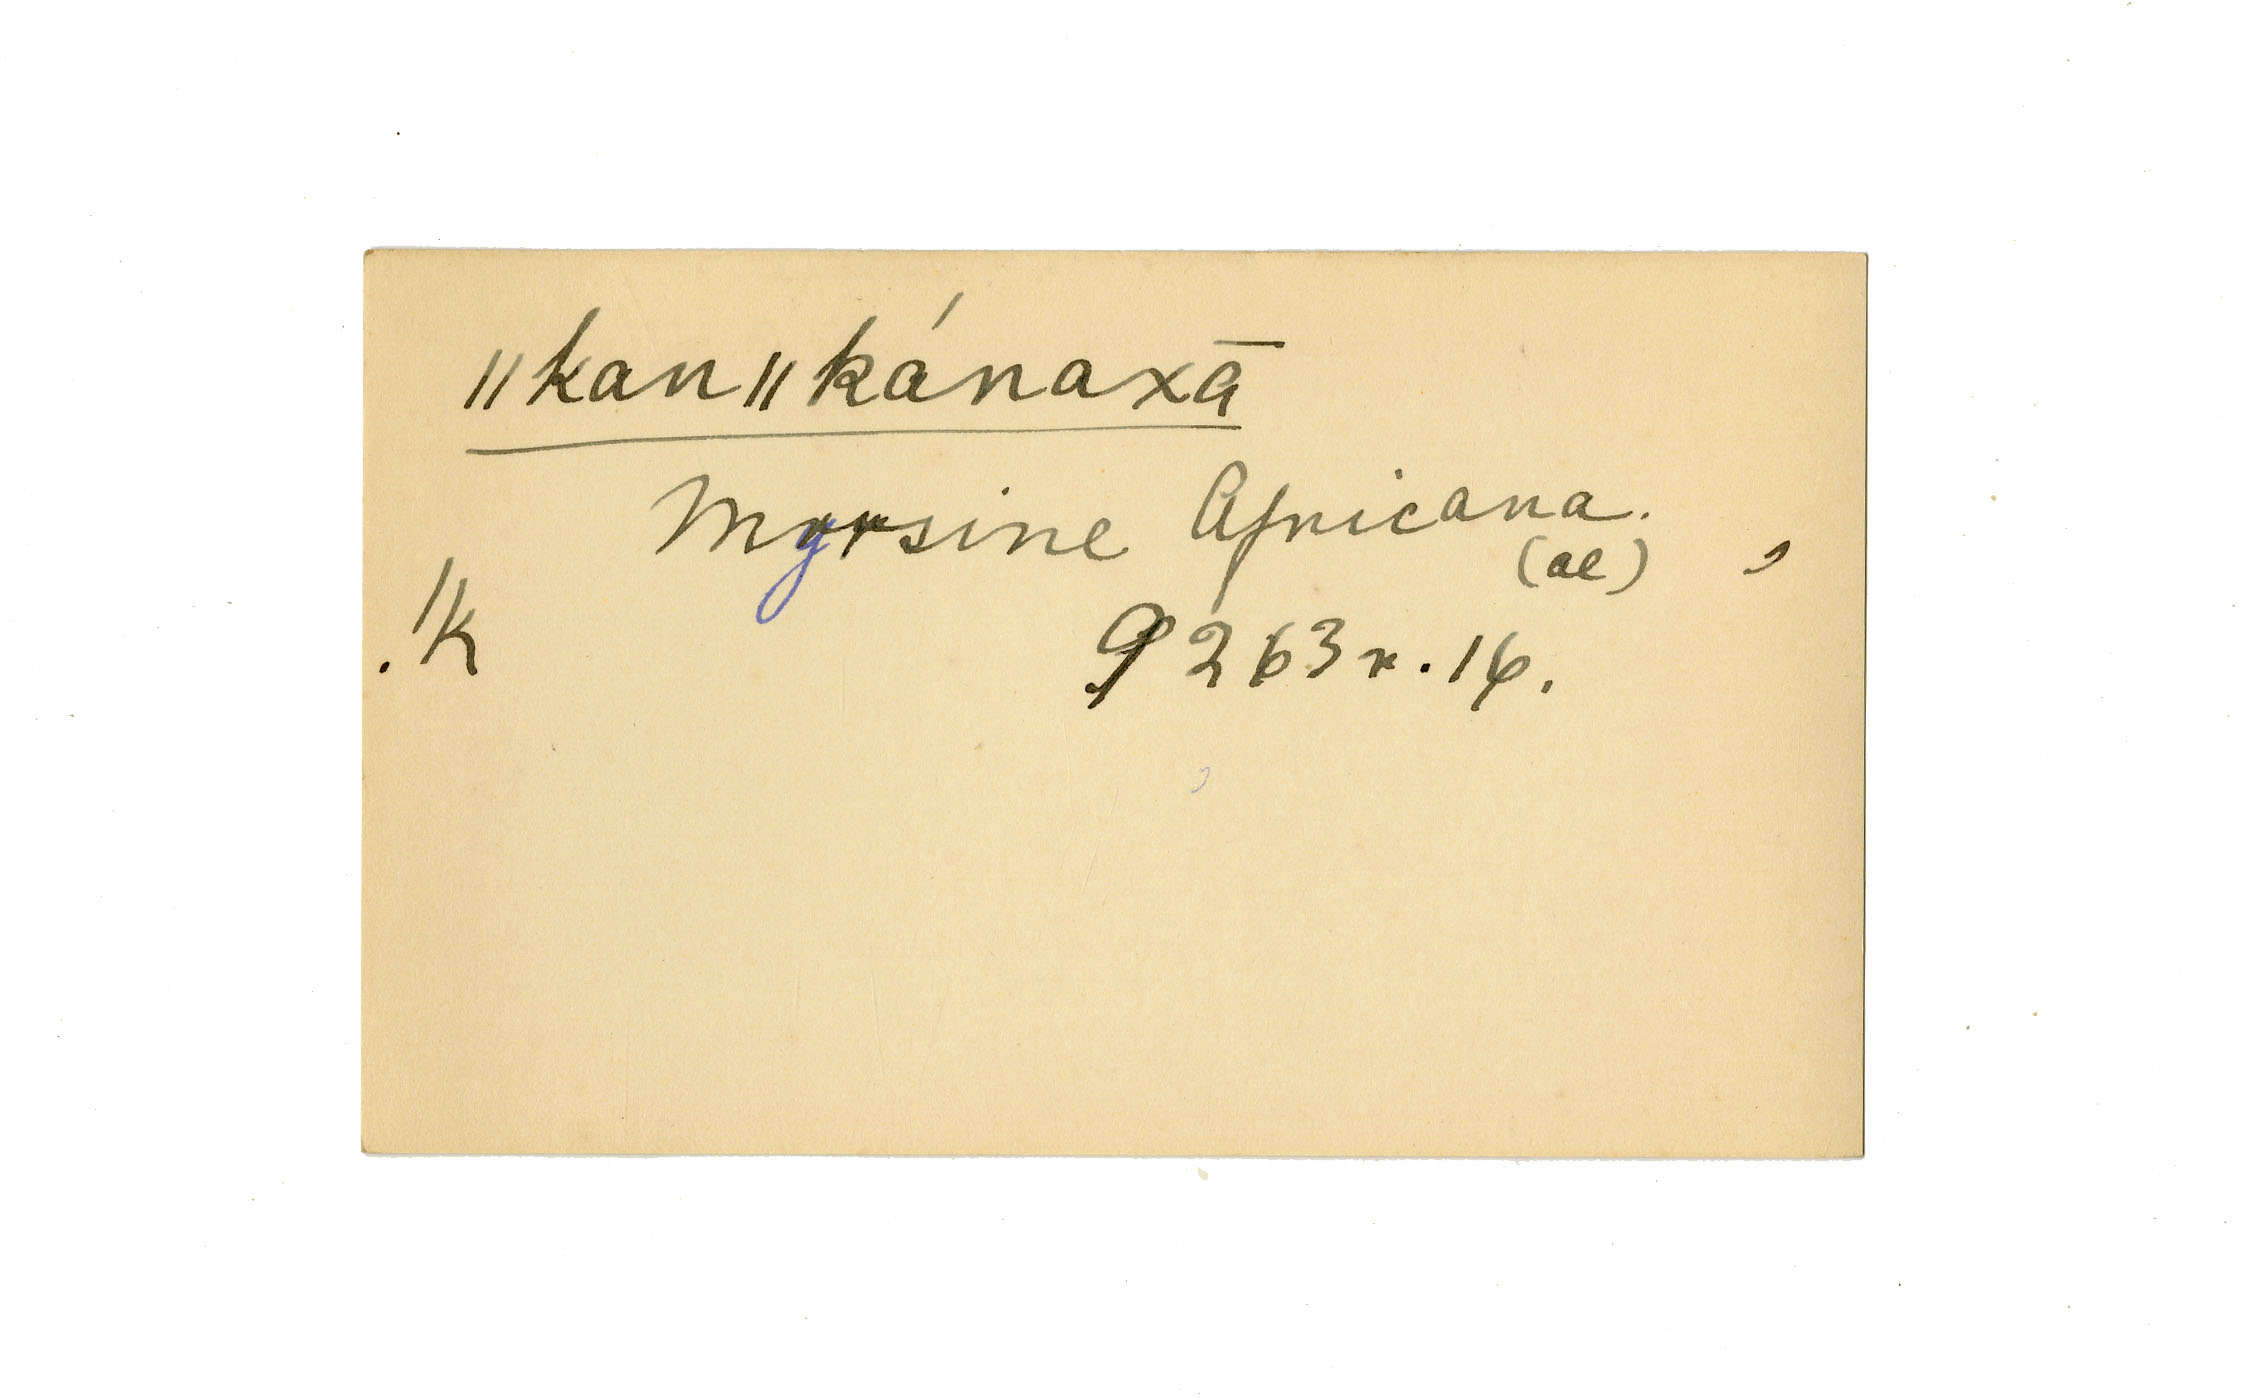 ǁkanǁkánaxā
Myrsine Africana.
(ae)
!k
9263r.16.